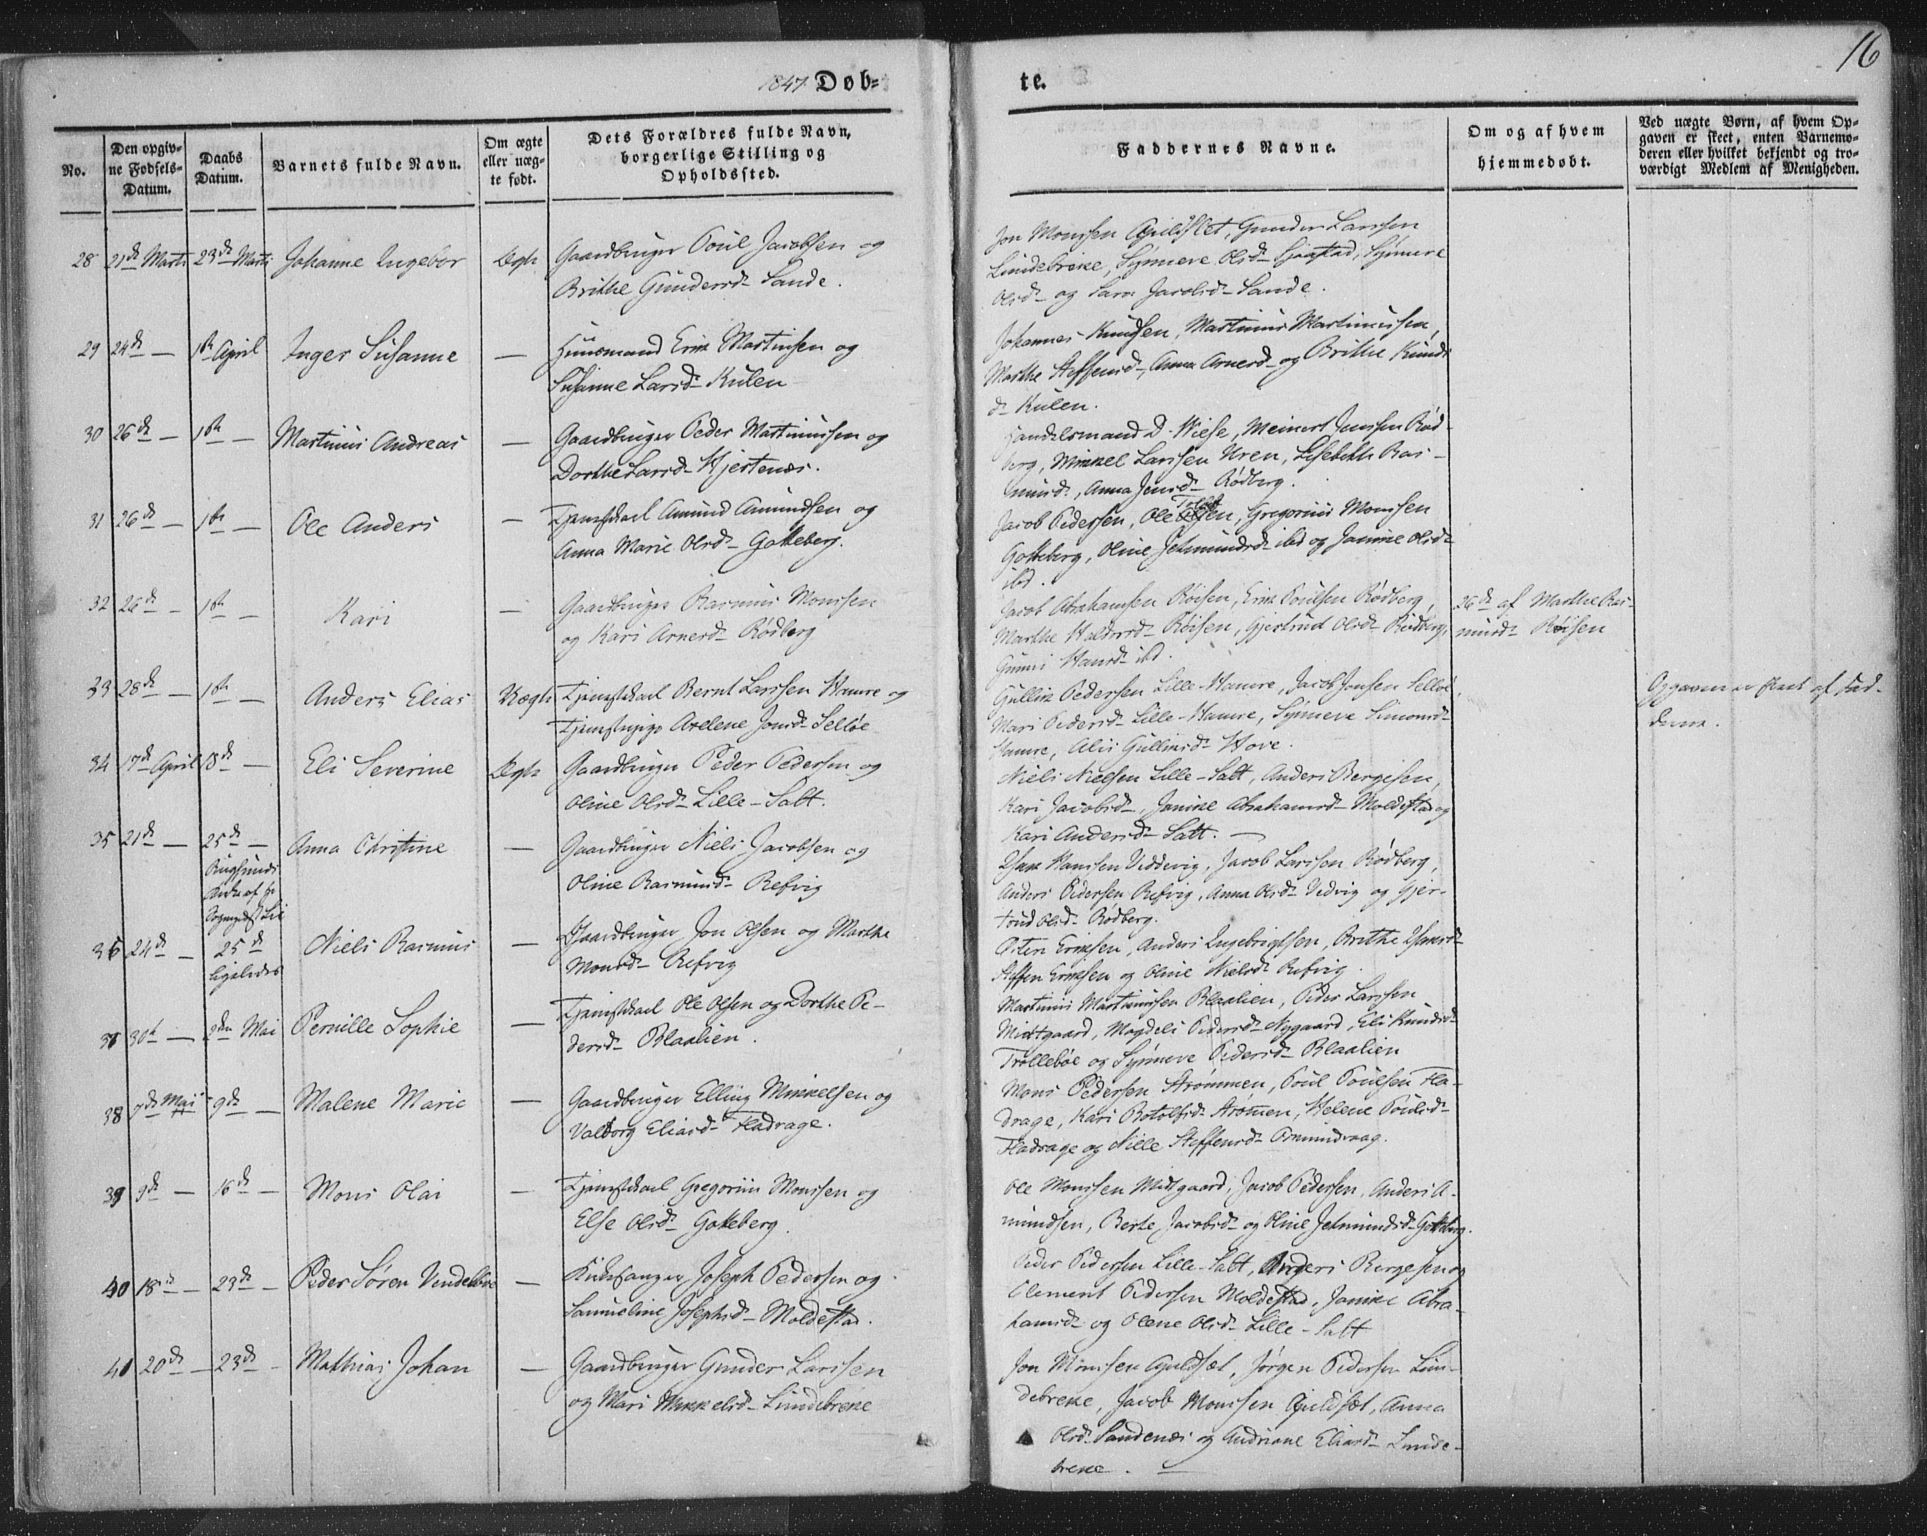 1847. Døb=
te.
16
No.
Den opgiv-
ne Fødsels-
Datum.
Daabs
Datum.
Barnets fulde Navn.
Om ægte
eller uæg-
te født.
Dets Forældres fulde Navn,
borgerlige Stilling og
Opholdssted.
Faddernes Navne.
Om og af hvem
hjemmedøbt.
Ved uægte Børn, af hvem Op-
gaven er skeet, enten Barnemo-
deren eller hvilket bekjendt og tro-
værdigt Medlem af Menigheden.
28 21de Marts 23de Marts Johanne Ingebor Ægte Gaardbruger Poul Jacobsen og
Brithe Gundersd. Sande.
Jon Monssen Guldsæt, Gunder Larssen
Lundebrekke, Synneve Olsd. Sjaastad, Synneve
Olsd. og Sara Jacobsd. Sande.
29 24de — 1ste April Inger Susanne — Huusmand Erik Martinsen og
Susanne Larsd. Kulen
Johannes Knudsen, Martinus Martinussen,
Marthe Steffensd., Anna Arnesd. og Brithe Knuds-
d. Kulen.
30 26de — 1ste — Martinus Andreas — Gaardbruger Peder Martinussen og
Dorthe Larsd. Hjertenæs.
Handelsmand D. Wiese, Meinert Jenssen Rød-
berg, Mikkel Larssen Uren, Lisebeth Ras-
musd., Anna Jensd. Rødberg.
31 26de — 1ste — Ole Anders — Tjenestkarl Amund Amundsen og
Anna Marie Olsd. Gotteberg.
Jacob Pedersen, Ole Tollefsen, Gregorius Monssen
Gotteberg, Oline Jetmundsd. ibd og Janine Olsd.
ibd.
32 26de — 1ste — Kari — Gaardbruger Rasmus Monssen
og Kari Arnesd. Rødberg
Jacob Abrahamsen Røisen, Erik Poulsen Rødberg,
Marthe Haldorsd. Røisen, Gjertrud Olsd. Rødberg,
Gunni Hansd. ibd.
26de af Marthe Ras-
musd. Røisen
33 28de — 1ste — Anders Elias Uægte Tjenestkarl Bernt Larssen Hamre og
Tjenestepige Avelene Jonsd. Selløe
Gullik Pedersen Lille-Hamre, Jacob Jonsen Selløe,
Mari Pedersd. Lille-Hamre, Synneve Simonsd.
Hamre, Alis Gulliksd. Hove.
Opgaven er skeet af Fad-
derne.
34 17de April 18de — Eli Severine Ægte Gaardbruger Peder Pedersen og
Oline Olsd. Lille-Salt.
Niels Nielsen Lille-Salt, Anders Børgesen,
Kari Jacobsd., Janikke Abrahamsd. Moldestad og
Kari Andersd. Salt. —
35 21de — 25de — Anna Christine — Gaardbruger Niels Jacobsen og
Oline Rasmusd. Refvig
Rugsunds
Kirke af
Isak Hanssen Vedvig, Jacob Larssen Rødberg,
Anders Pedersen Refvig, Anna Olsd. Vedvig og Gjer-
trud Olsd. Rødberg.
36 24de — 25de Niels Rasmus — Gaardbruger Jon Olsen og Marthe
ligeledes Monsd. Refvig
Peter Eriksen, Anders Ingebrigtsen, Brithe Isaksd.
Steffen Eriksen og Oline Nielsd. Refvig.
37 30te — 2den Mai Pernille Sophie — Tjenestkarl Ole Olsen og Dorthe Pe-
dersd. Blaalien.
Martinus Martinussen Blaalien, Peder Larssen
Midtgaard, Magdeli Pedersd. Nygaard, Eli Knudsd.
Trollebøe og Synneve Pedersd. Blaalien
38 7de Mai 9de — Malene Marie — Gaardbruger Elling Mikkelsen og
Valborg Eliasd. Fladrage.
Mons Pedersen Strømmen, Poul Poulsen Fla-
drage, Kari Botolfsd. Strømen, Helene Poulsd.
Fladrage og Nille Steffensd. Osmundvaag.
39 9de — 16de — Mons Olai — Tjenestkarl Gregorius Monssen og
Else Olsd. Gotteberg.
Ole Monssen Midtgaard, Jacob Pedersen, Anders A-
mundsen, Berte Jacobsd. og Oline Jetmundsd. Gotteberg.
40 18de — 23de — Peder Søren Vendelboe — Kirkesanger Joseph Pedersen og
Samueline Josephsd. Moldestad.
Peder Pedersen Lille-Salt, Anders Børgesen og
Clement Pedersen Moldestad, Janikke Abra-
hamsd. og Olene Olsd. Lille-Salt
41 20de — 23de — Mathias Johan — Gaardbruger Gunder Larssen
og Mari Mikkelsd. Lundebrekke
Jon Monssen Guldsæt, Jørgen Pedersen Lun-
debrekke, Jacob Monssen Guldsæt, Anna
Olsd. Sandenæs og Andriane Eliasd. Lunde-
brekke. —